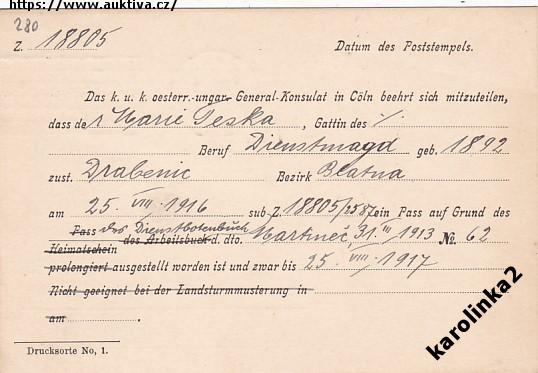 https://www.auktiva.cz/
280
Z. 18805
Datum des Poststempels.
Das k. u. k. oesterr.-ungar. General-Konsulat in Cöln beehrt sich mitzuteilen,
dass de r Marie Peska, Gattin des /.
Beruf Dienstmagd geb. 1892
zust. Drabenic Bezirk Blatna
am 25. VIII. 1916 sub Z. 18805/2587 ein Pass auf Grund des
Pass des Dienstbotenbuch
Heimatschein des Arbeitsbuck d. dto. Martineč, 31. III 1913 № 62
prolongiert ausgestellt worden ist und zwar bis 25. VIII. 1917
Nicht geeignet bei der Landsturmmusterung in
am .
Drucksorte No, 1.
karolinka2